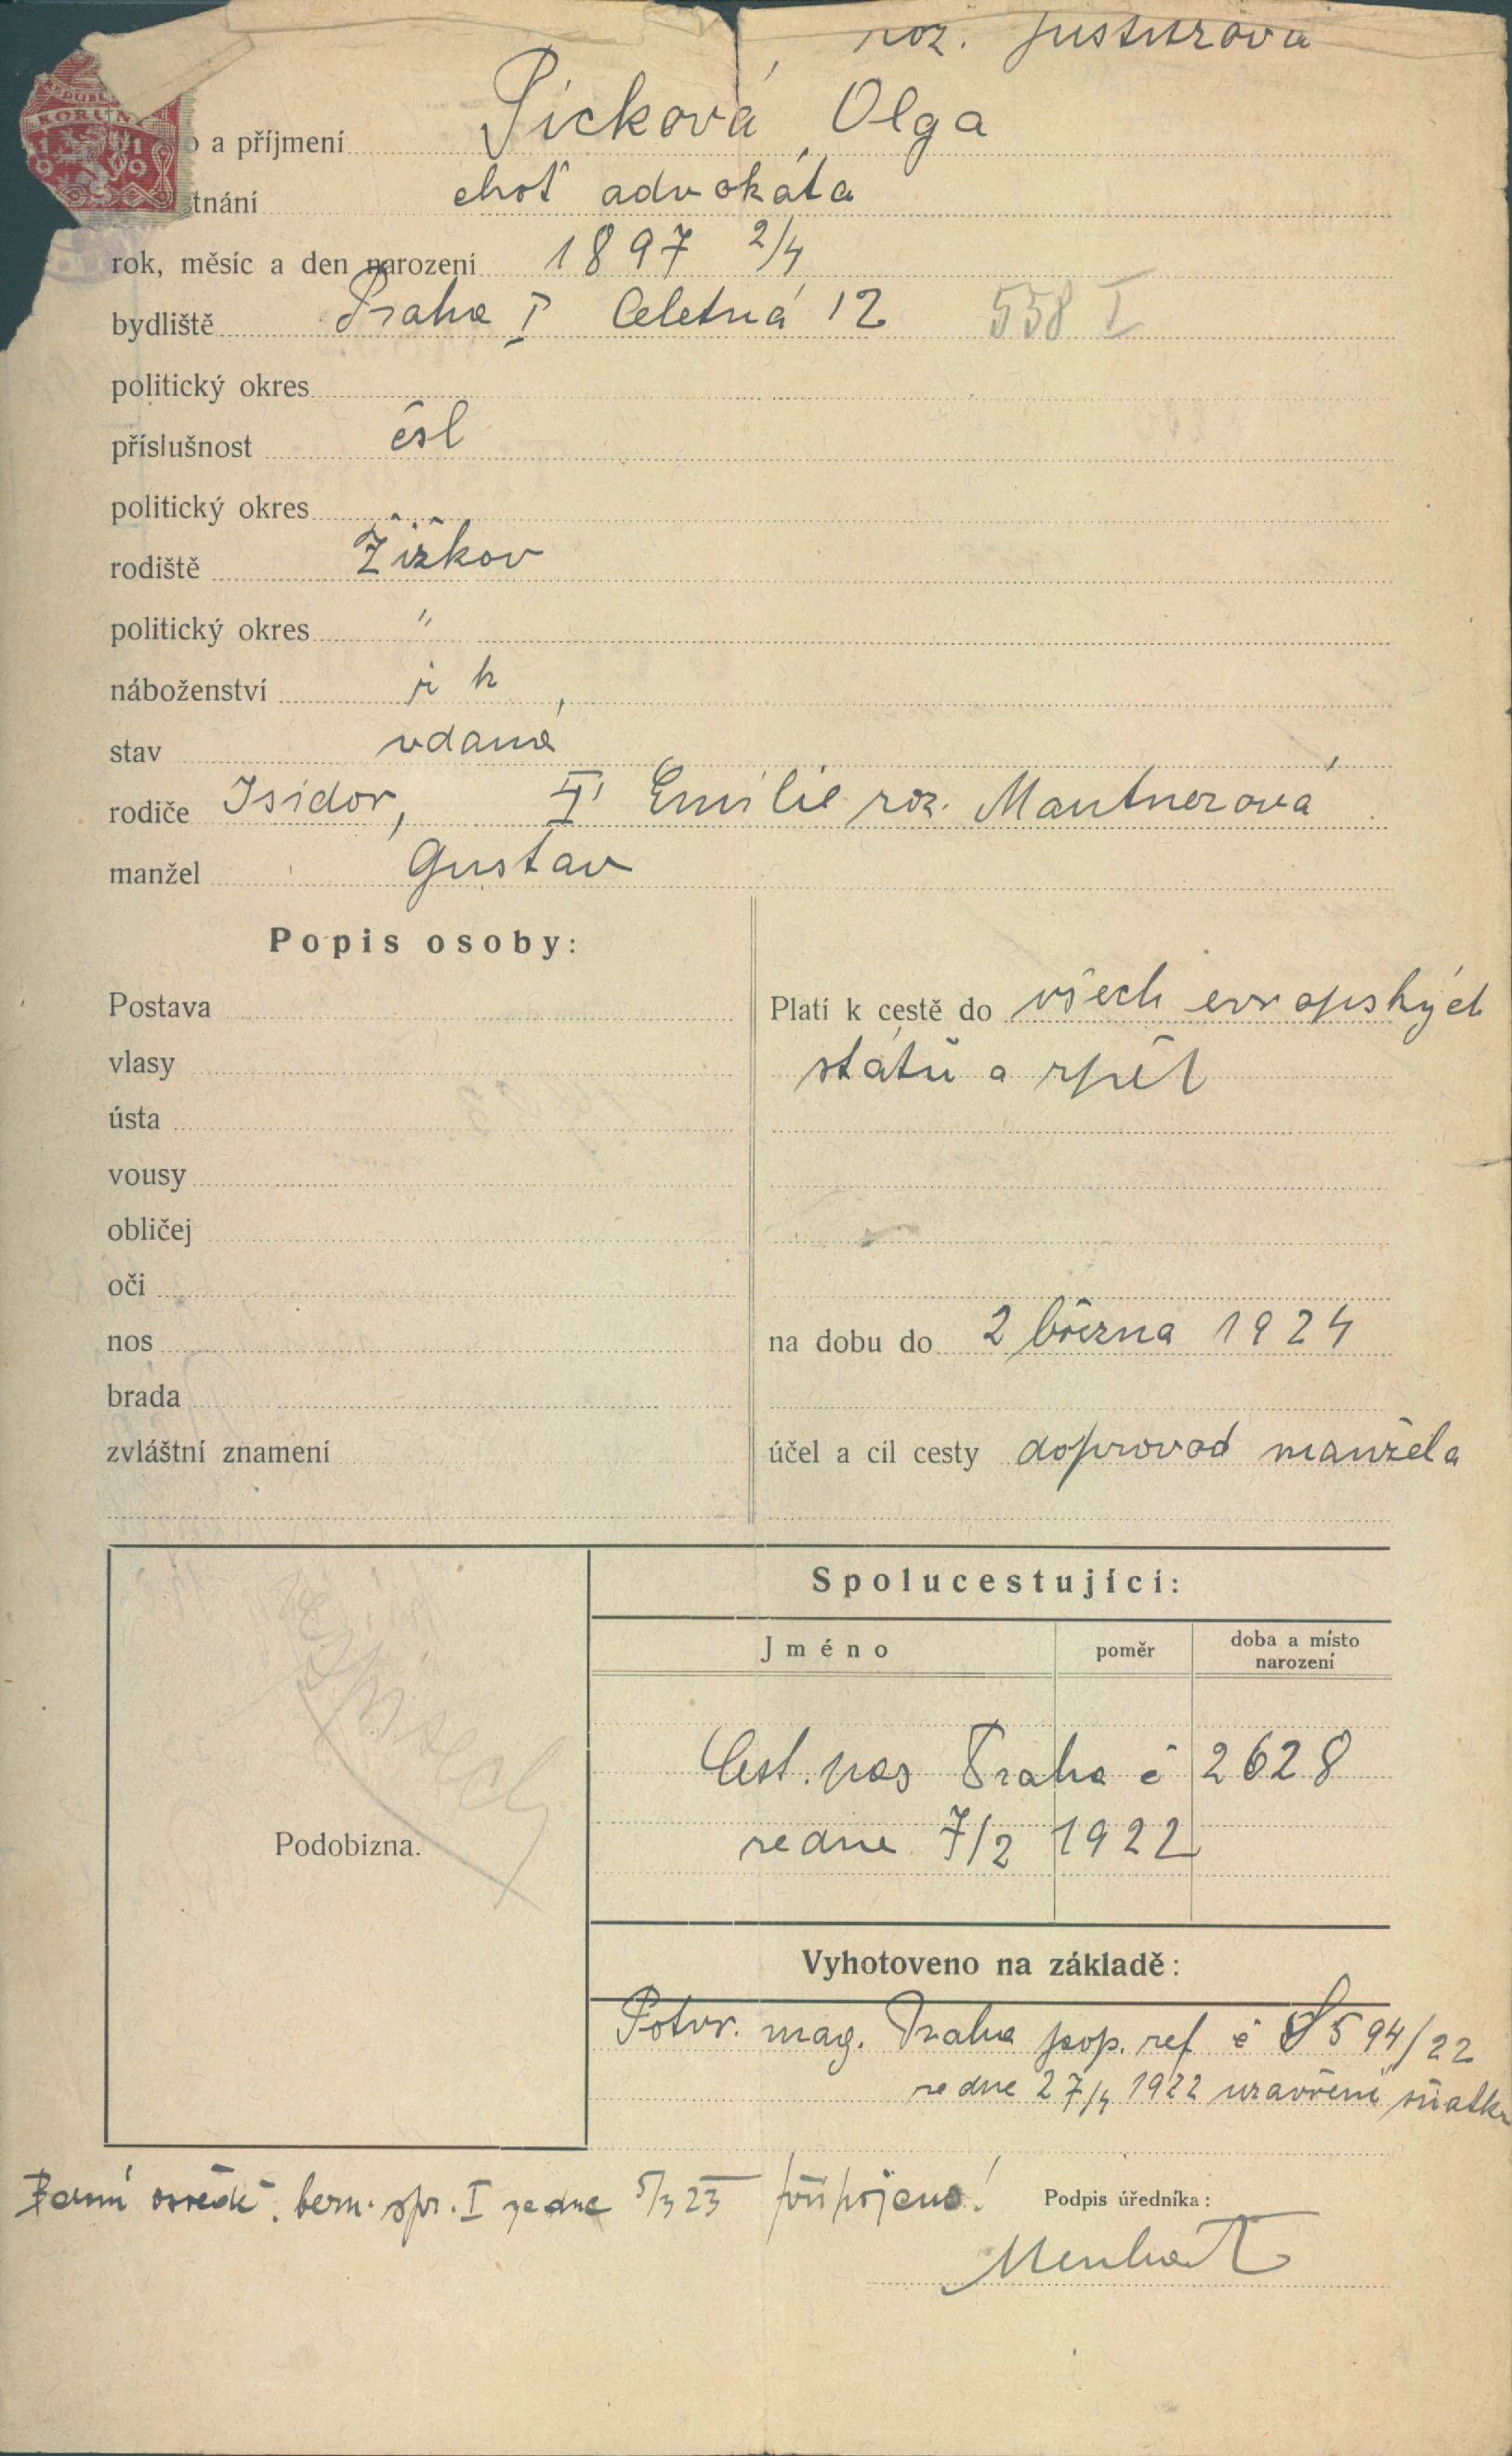 roz. Justitzová
KORUN
1919
o a příjmení Picková Olga
tnání choť advokáta
rok, měsíc a den narození 1897 2/4
bydliště Praha I Celetná 12 558 I
politický okres
příslušnost čsl
politický okres
rodiště Žižkov
politický okres "
náboženství
stav vdaná
rodiče Isidor, Emilie roz. Mautnerová
manžel Gustav
Popis osoby:
Postava
vlasy
ústa
vousy
obličej
oči
nos
brada
zvláštní znamení
Platí k cestě do všech evropských
států a zpět
na dobu do 2 března 1924
účel a cíl cesty doprovod manžela
Podobizna.
Spolucestující:
Jméno poměr doba a místo narození
Cest. pas Praha č 2628
ze dne 7/2 1922
Vyhotoveno na základě:
Potvr. mag. Praha pop. ref č 594/22
ze dne 27/4 1922 uzavření sňatku
bern. spr. I ze dne 5/3 23 připojeno!
Podpis úředníka: